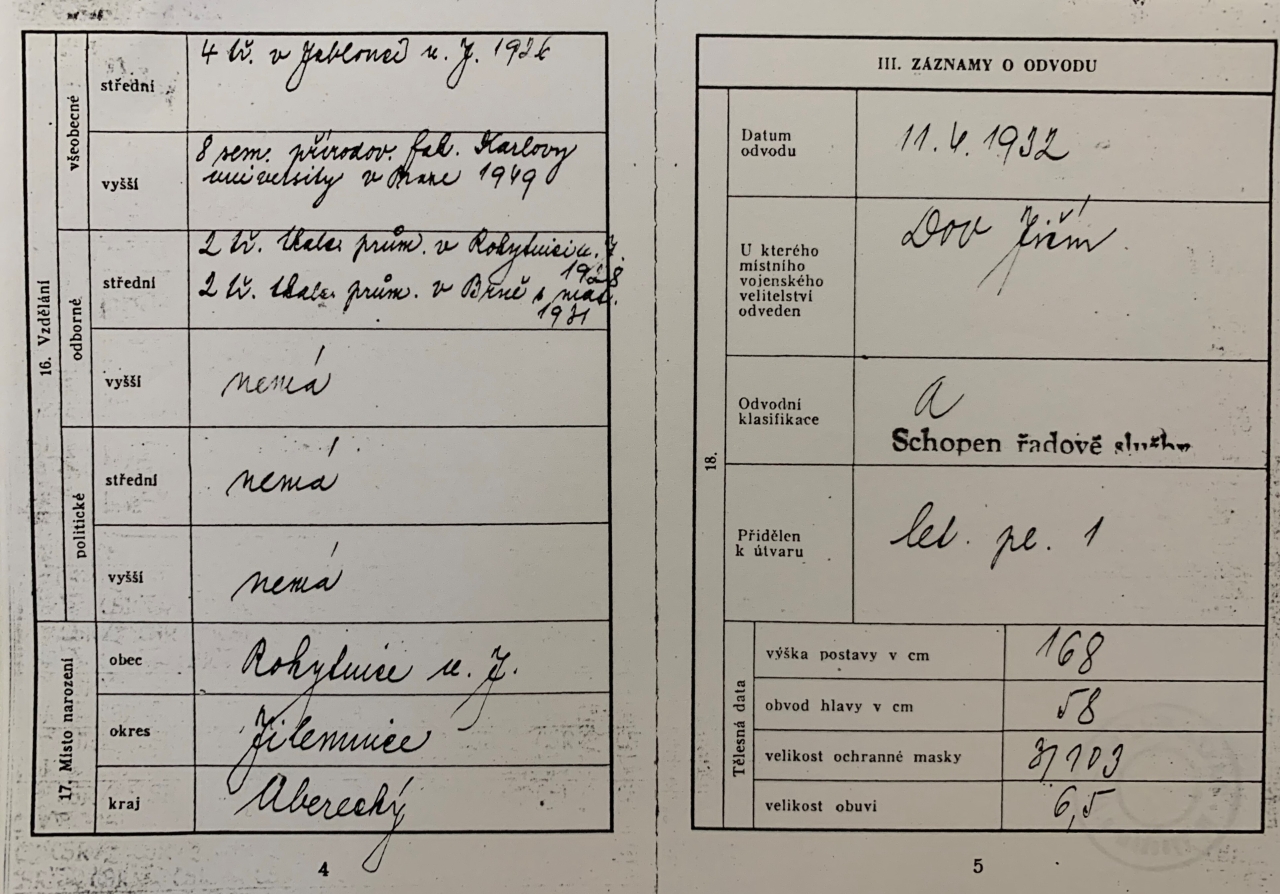 16. Vzdělání
všeobecné
střední
4 tř. v Jablonci n. J. 1926
vyšší
8 sem. přírodov. fak. Karlovy
university v Praze 1949
odborné
střední
2 tř. tkalc. prům. v Rokytnici n. J.
1928
2 tř. tkalc. prům. v Brně s mat.
1931
vyšší
nemá
politické
střední
nemá
vyšší
nemá
17. Místo narození
obec
Rokytnice n. J.
okres
Jilemnice
kraj
Liberecký
4
III. ZÁZNAMY O ODVODU
18.
Datum
odvodu
11. 4. 1932
U kterého
místního
vojenského
velitelství
odveden
Dov Jičín
Odvodní
klasifikace
A
Schopen řadové služby
Přidělen
k útvaru
let. pl. 1
Tělesná data
výška postavy v cm
168
obvod hlavy v cm
58
velikost ochranné masky
3/103
velikost obuvi
6,5
5